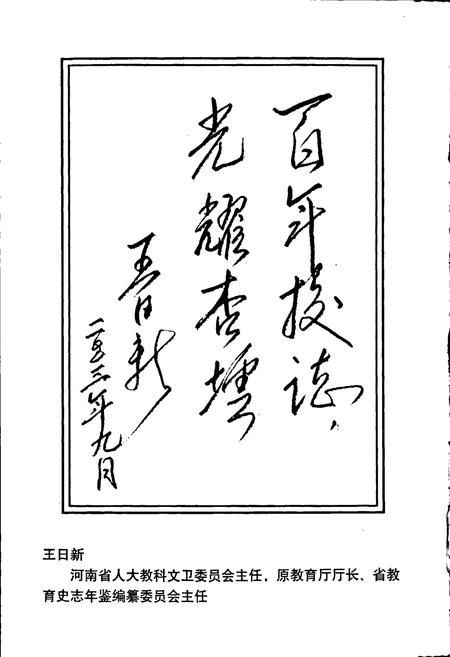 百年校志，
光耀杏坛
王日新
二〇〇三年九月
王日新
河南省人大教科文卫委员会主任，原教育厅厅长、省教
育史志年鉴编纂委员会主任